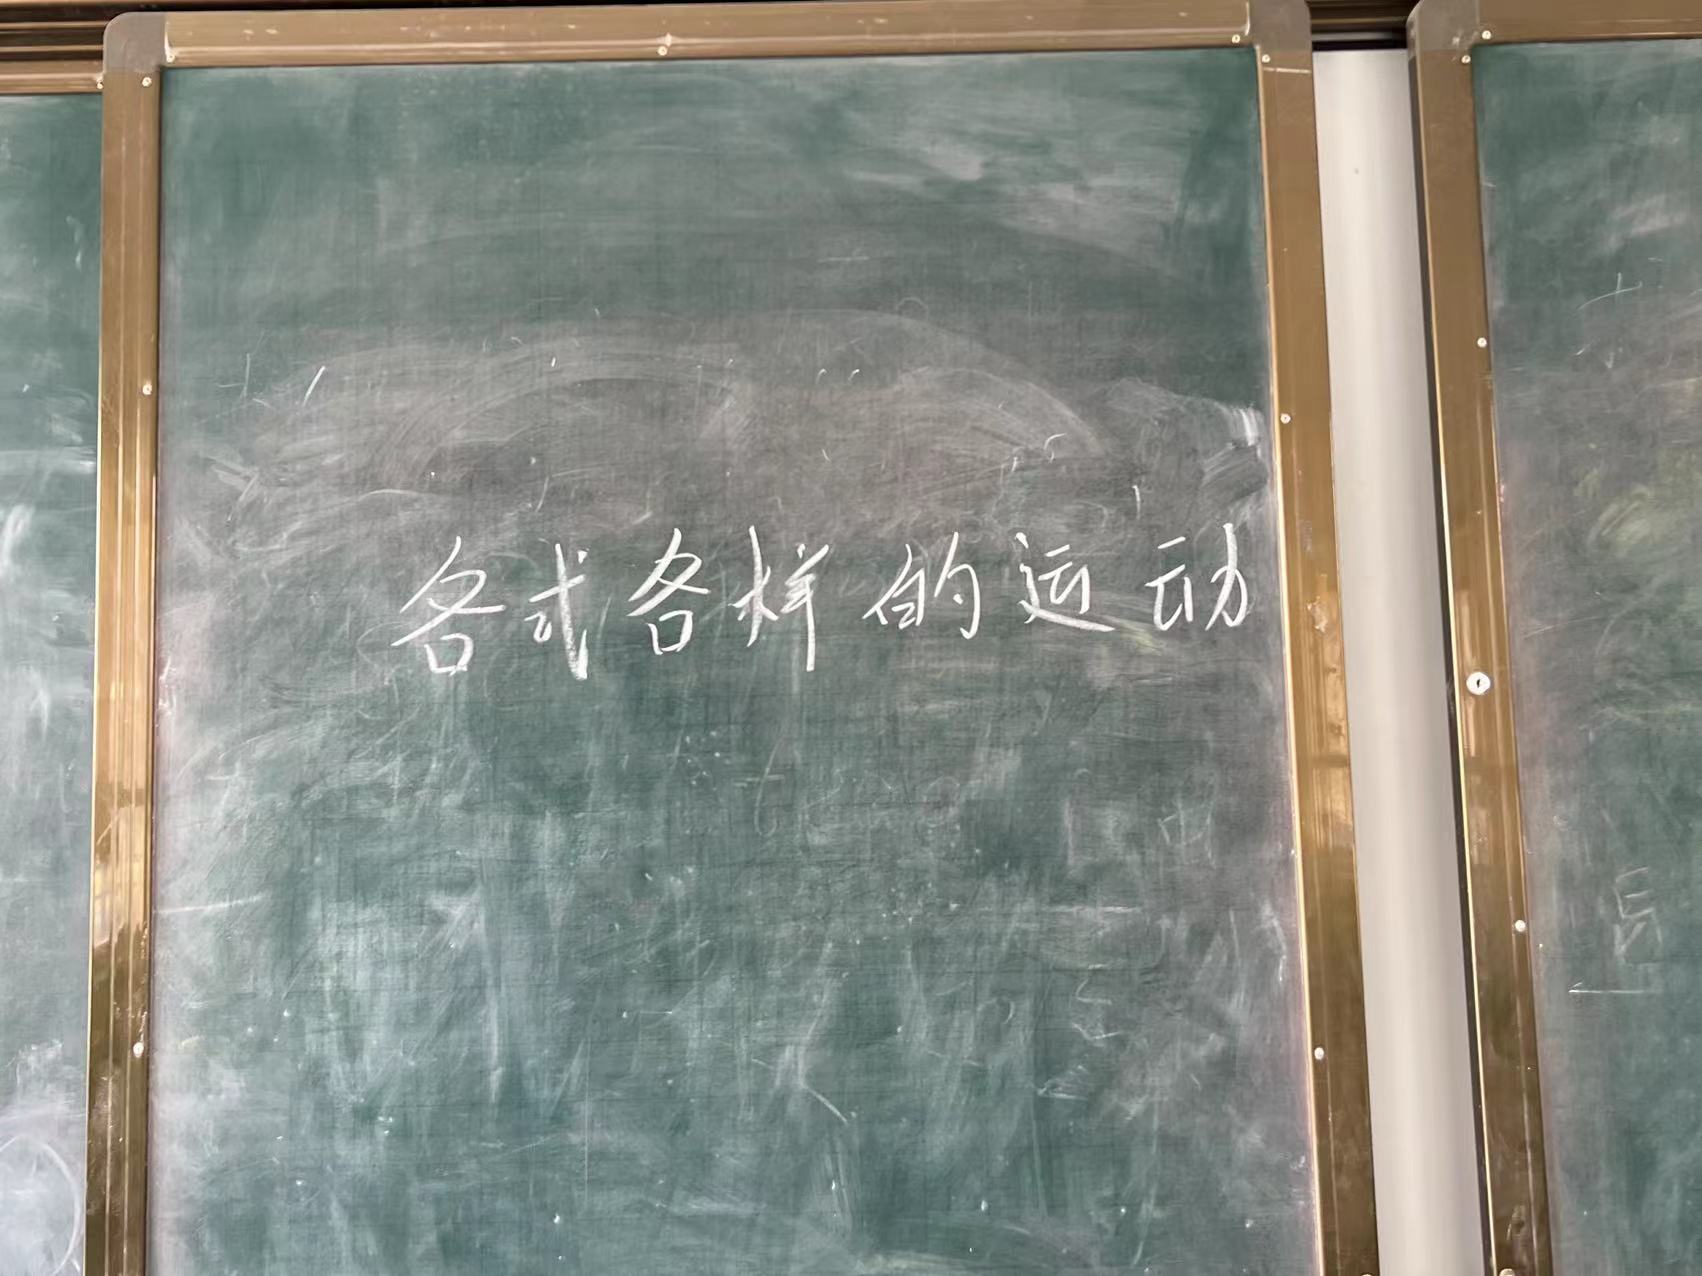 各式各样的运动